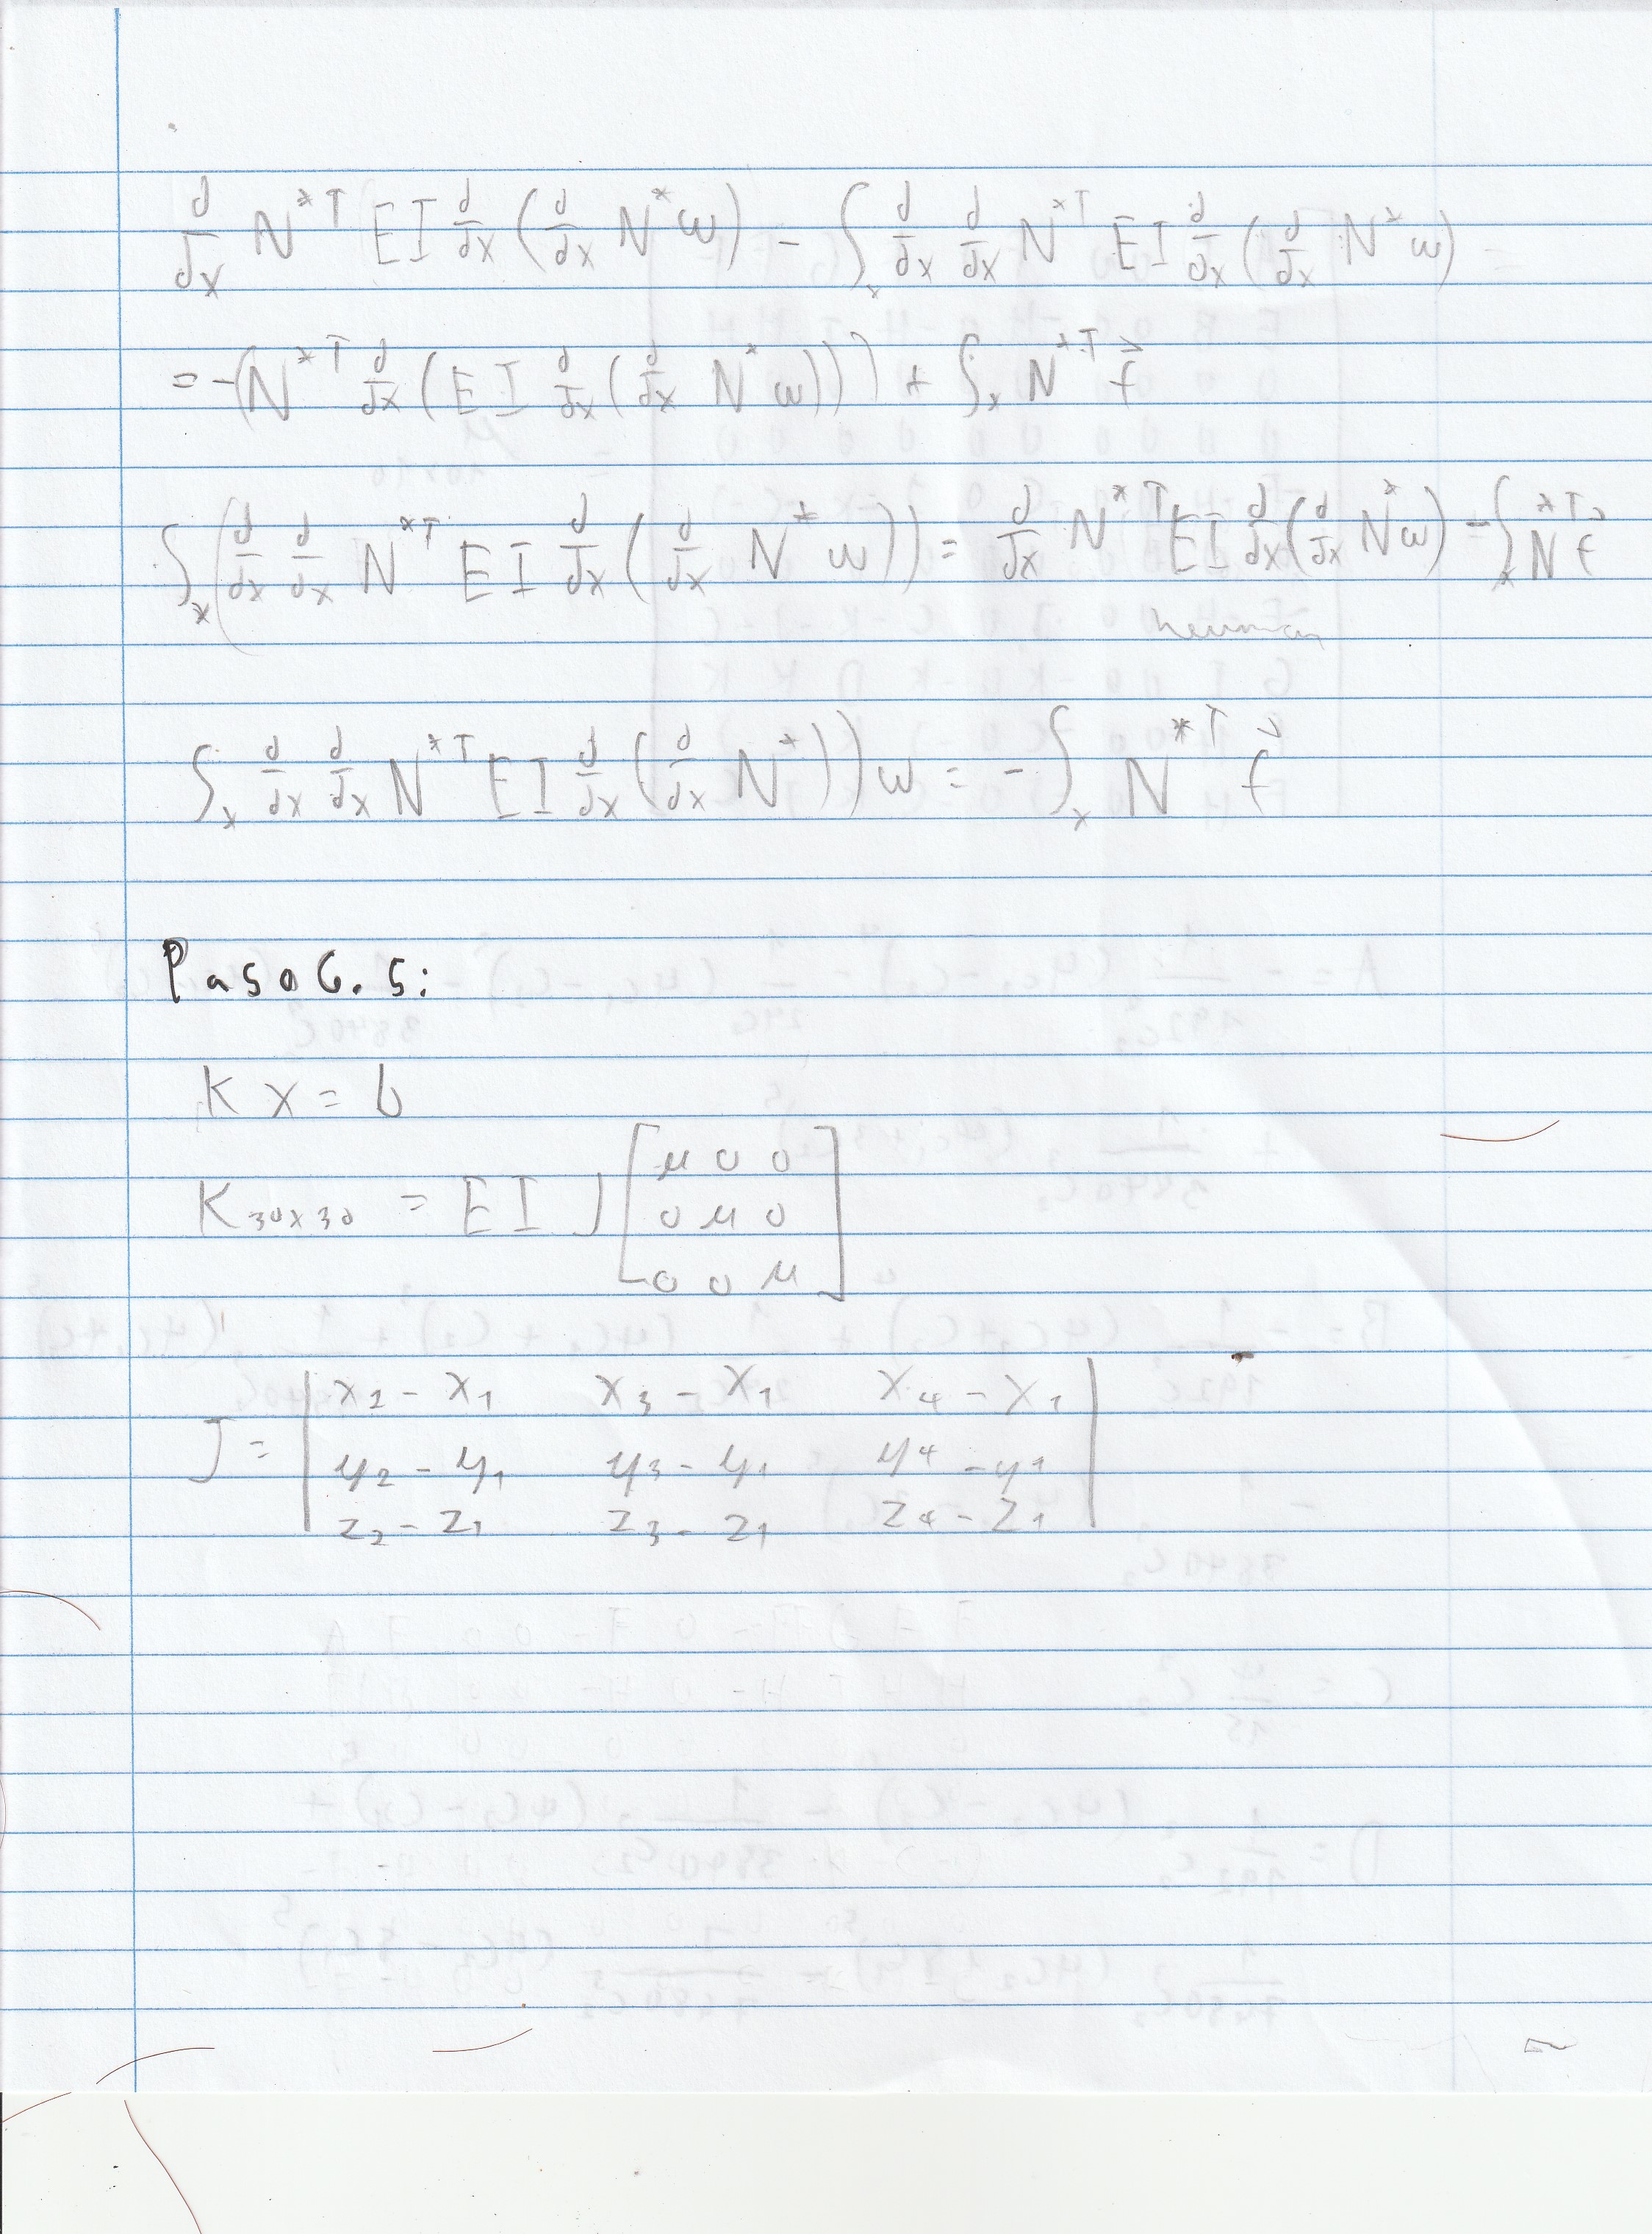 d/dx N*T EI d/dx (d/dx N* w) - ∫x d/dx d/dx N*T EI d/dx (d/dx N* w) =
= -(N*T d/dx (EI d/dx (d/dx N* w))) + ∫x N*T f⃗
∫x (d/dx d/dx N*T EI d/dx (d/dx N* w)) = d/dx N*T EI d/dx (d/dx N* w) - ∫x N*T f⃗
∫x d/dx d/dx N*T EI d/dx (d/dx N*)) w = - ∫x N*T f⃗
Paso 6.5:
K x = b
K 30x30 = EI J [μ 0 0
0 μ 0
0 0 μ]
J = | x2 - x1 x3 - x1 x4 - x1 |
y2 - y1 y3 - y1 y4 - y1
z2 - z1 z3 - z1 z4 - z1